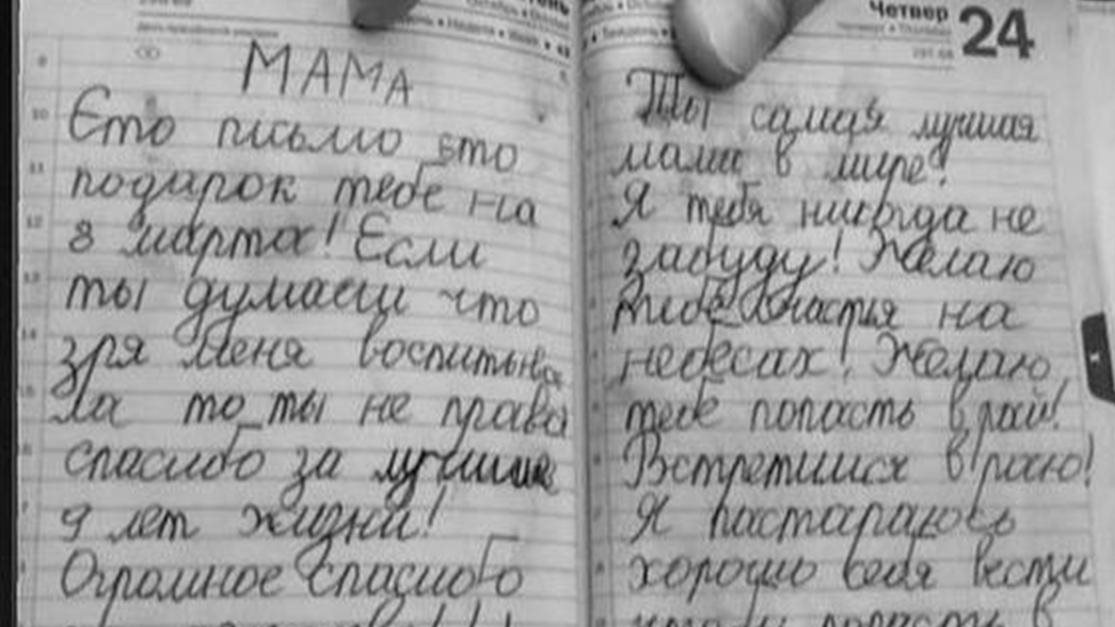 МАМА
Єто письмо єто
подарок тебе на
8 марта! Если
ты думаеш что
зря меня воспитыва
ла то ты не права
спасибо за лучшие
9 лет жизни!
Огромное спасибо
Четвер 24
Ты самая лучшая
мама в мире!
Я тебя никогда не
забуду! Желаю
тебе счастья на
небесах! Желаю
тебе попасть в рай!
Встретимся в раю!
Я пастараюсь
хорошо себя вести
чтобы попасть в